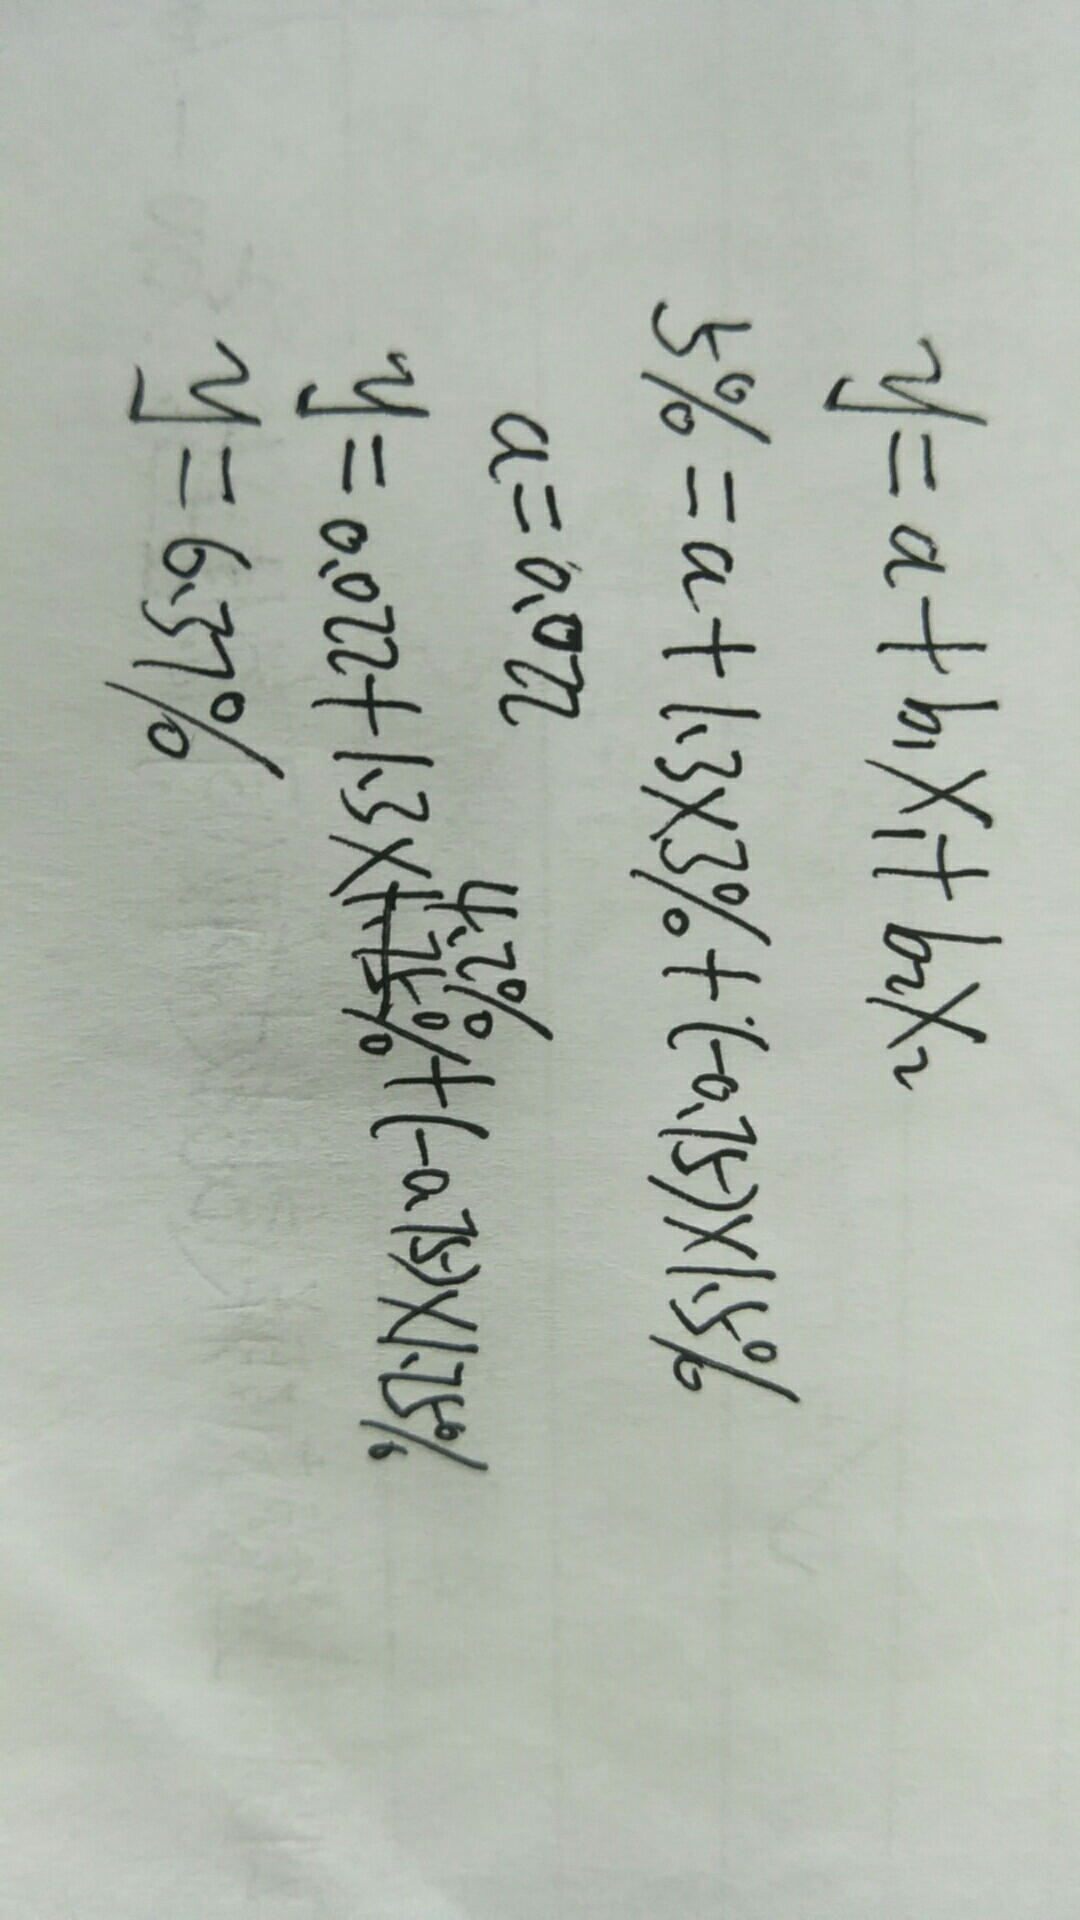 y=a+b₁x₁+b₂x₂
5%=a+1.3×3%+(-0.75)×1.5%
a=0.022
4.2%
y=0.022+1.3×+(-0.75)×1.25%
y=6.37%